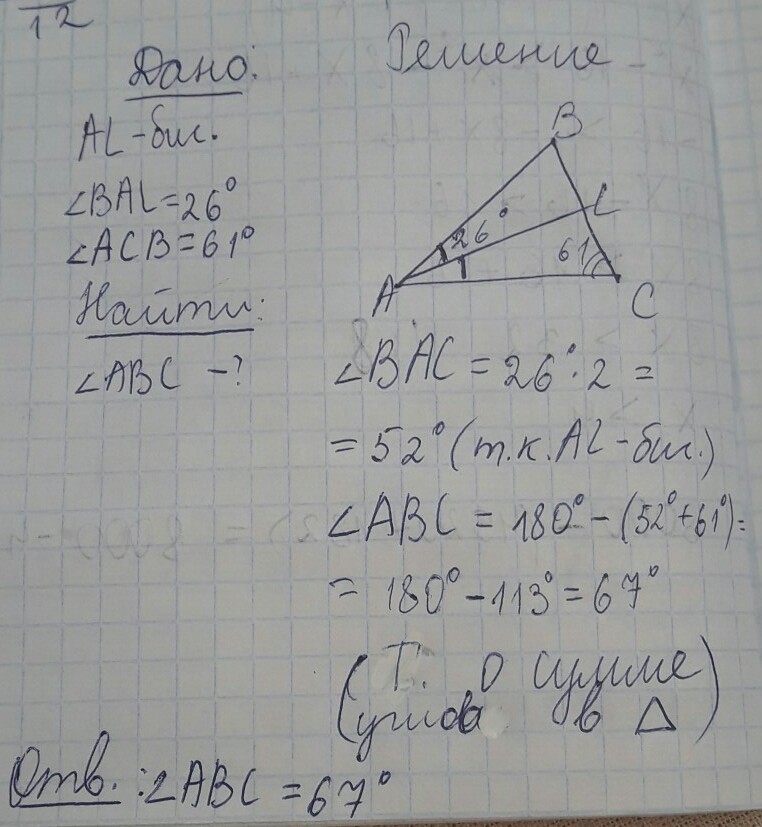 12
Дано:
AL-бис.
∠BAL=26°
∠ACB=61°
Найти:
∠ABC -?
Решение
B
26°
L
61
A
C
∠BAC = 26°·2 =
= 52° (т.к. AL-бис.)
∠ABC = 180° - (52°+61°) =
= 180° - 113° = 67°
(Т. о сумме
углов в △)
Отв.: ∠ABC = 67°